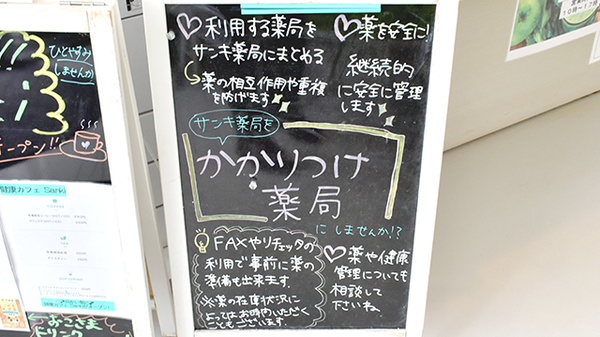 ひとやすみ
しませんか
オープン!!
健康カフェ Sanki
おこさま
ドリンク
利用する薬局を
サンキ薬局にまとめる
薬の相互作用や重複
を防げます
薬を安全に!
継続的
に安全に管理
します
サンキ薬局を
かかりつけ
薬局
にしませんか!?
FAXやリチェッタの
利用で事前に薬の
準備も出来ます。
※薬の在庫状況に
よってはお時間いただく
こともございます。
薬や健康
管理についても
相談して
下さいね